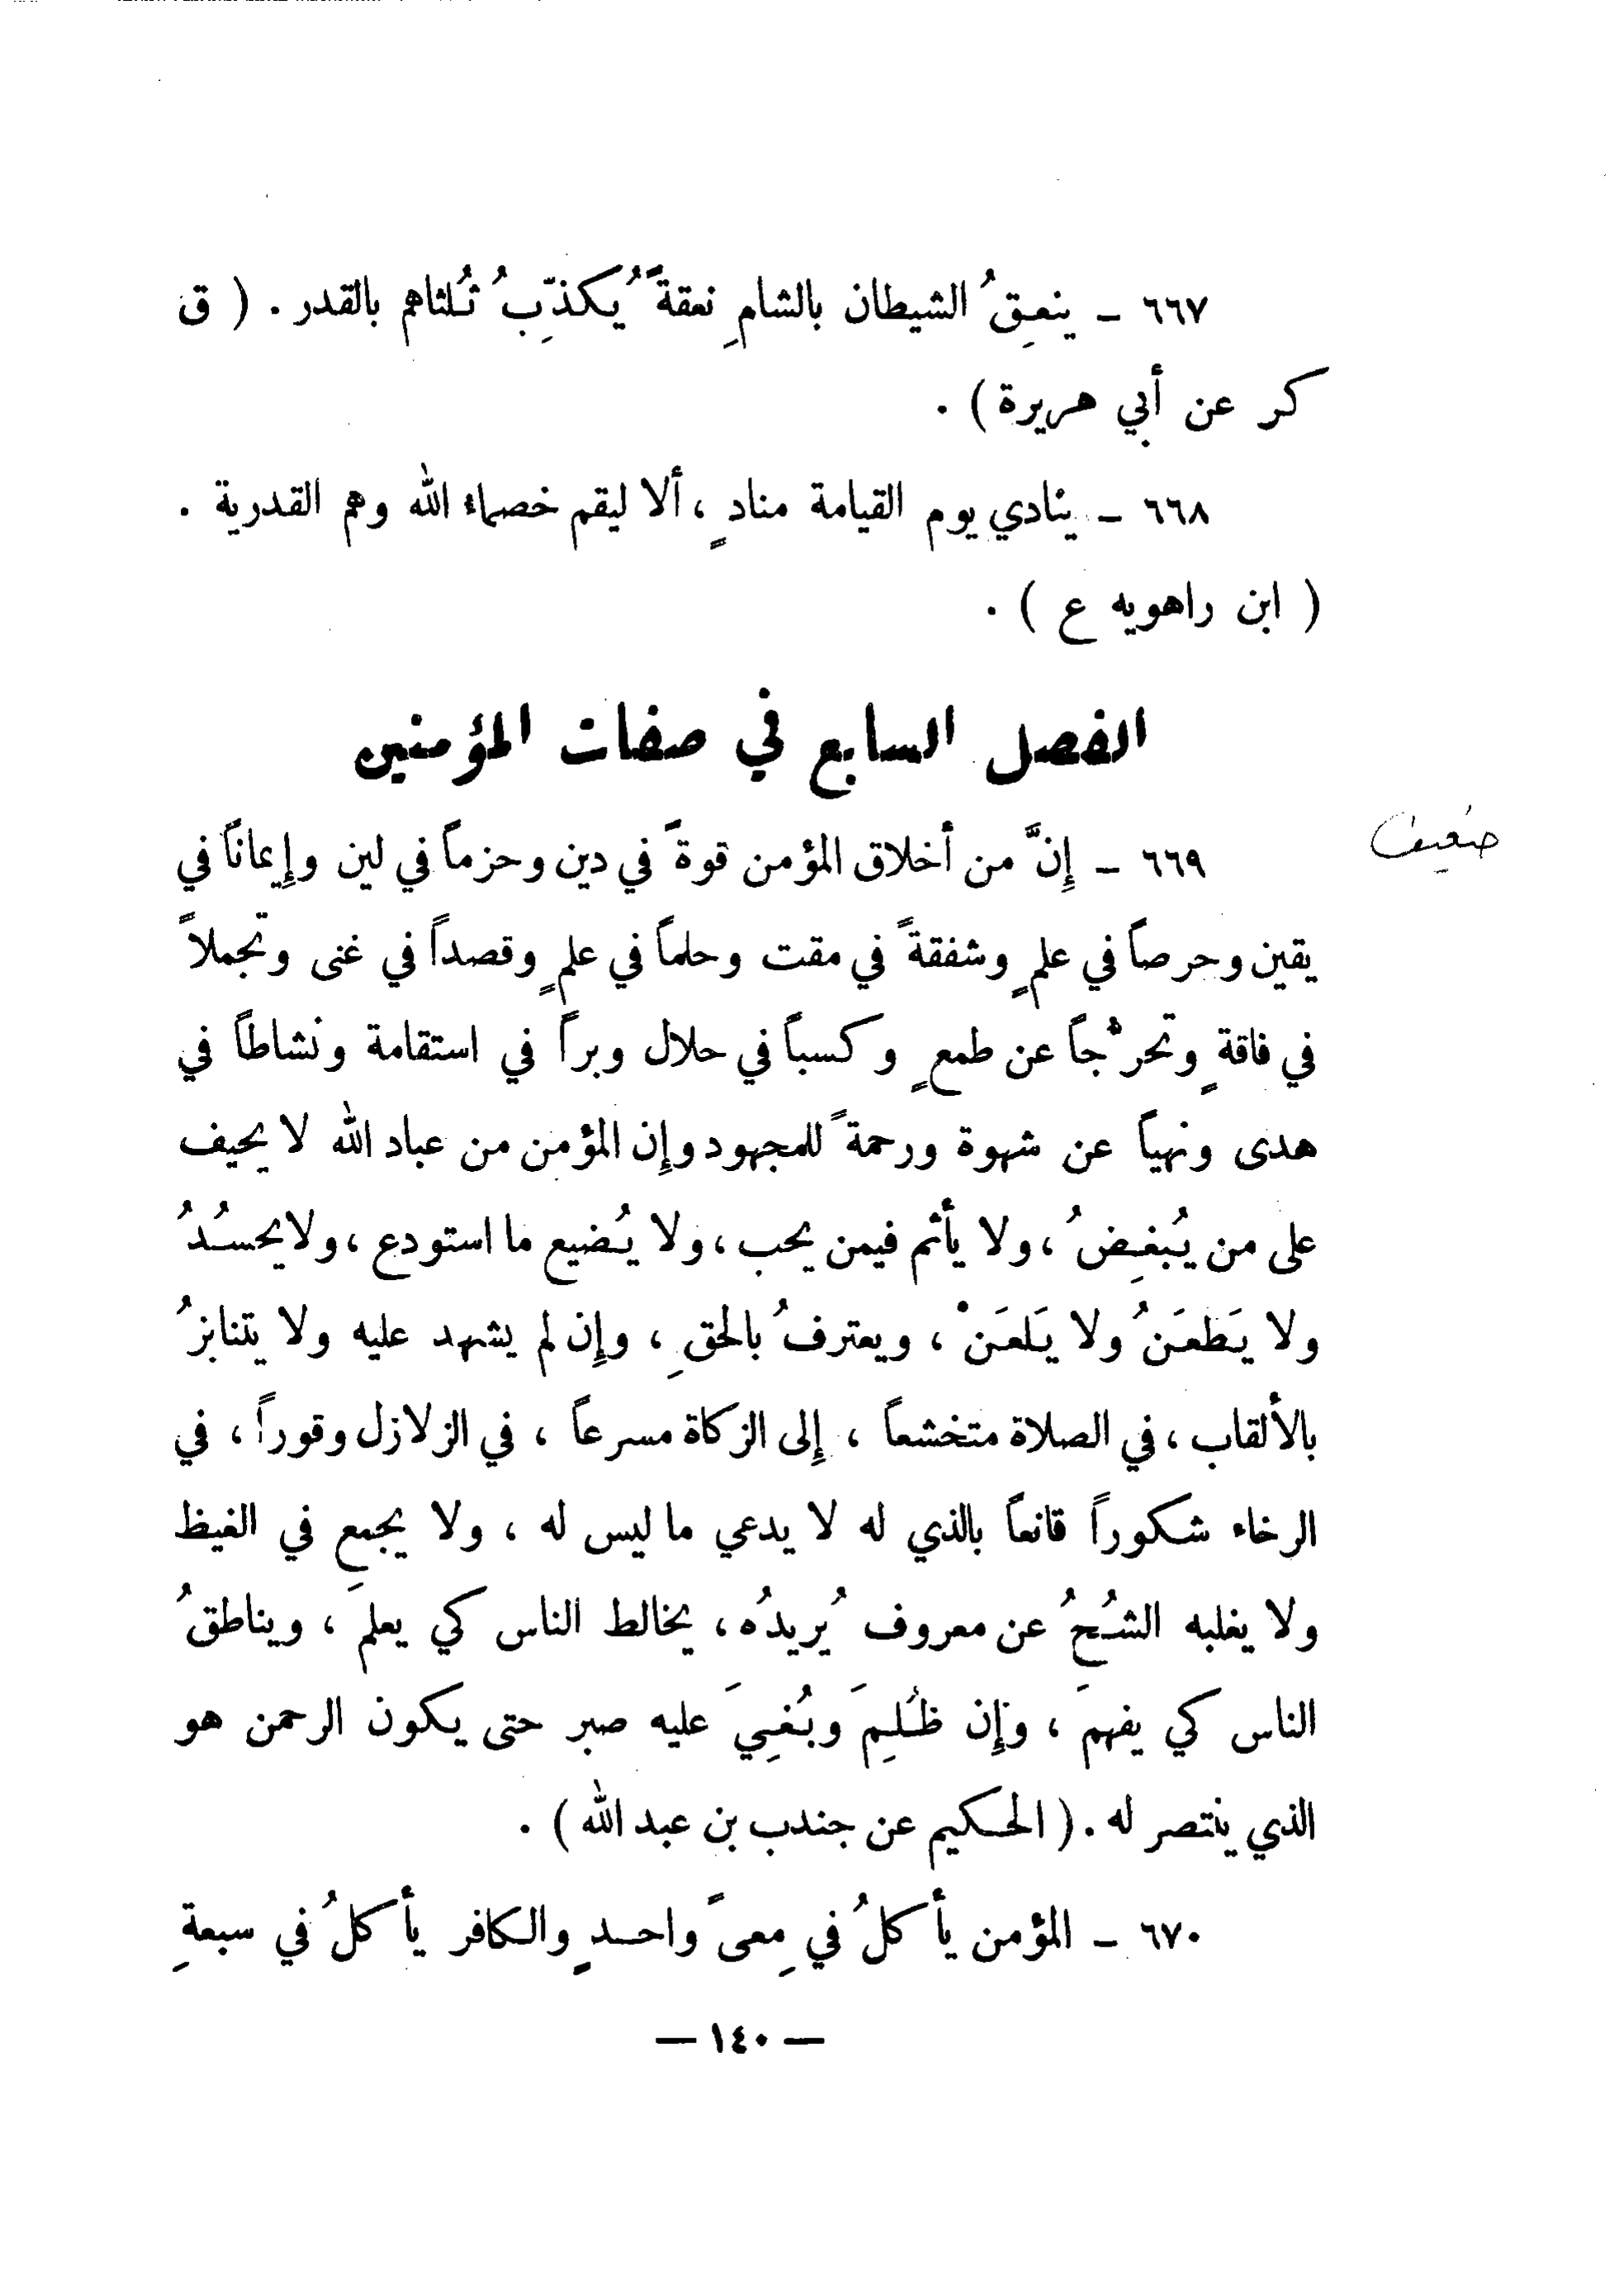 ٦٦٧ - ينعِقُ الشيطان بالشامِ نعقةً يُكذِّبُ ثُلثاهم بالقدر . ( ق
كر عن أبي هريرة ) .
٦٦٨ - ينادي يوم القيامة منادٍ ، ألا ليقم خصماء الله وهم القدرية .
( ابن راهويه ع ) .
الفصل السابع في صفات المؤمنين
ضعيف
٦٦٩ - إِنَّ من أخلاق المؤمن قوةً في دين وحزماً في لين وإِيماناً في
يقين وحرصاً في علمٍ وشفقةً في مقت وحلماً في علمٍ وقصداً في غنى وتجملاً
في فاقةٍ وتحرُّجاً عن طمعٍ وكسباً في حلال وبراً في استقامة ونشاطاً في
هدى ونهياً عن شهوة ورحمةً للمجهود وإِن المؤمن من عباد الله لا يحيف
على من يُبغِضُ ، ولا يأثم فيمن يحب ، ولا يُضيع ما استودع ، ولا يحسُدُ
ولا يَطعَنُ ولا يَلعَنْ ، ويعترفُ بالحقِ ، وإِن لم يشهد عليه ولا يتنابزُ
بالألقاب ، في الصلاة متخشعاً ، إِلى الزكاة مسرعاً ، في الزلازل وقوراً ، في
الرخاء شكوراً قانعاً بالذي له لا يدعي ما ليس له ، ولا يجمع في الغيظ
ولا يغلبه الشُحُ عن معروف يُريدُه ، يخالط الناس كي يعلمَ ، ويناطقُ
الناس كي يفهمَ ، وإِن ظُلِمَ وبُغِيَ عليه صبر حتى يكون الرحمن هو
الذي ينتصر له . ( الحكيم عن جندب بن عبد الله ) .
٦٧٠ - المؤمن يأكلُ في مِعىً واحدٍ والكافر يأكلُ في سبعةِ
— ١٤٠ —